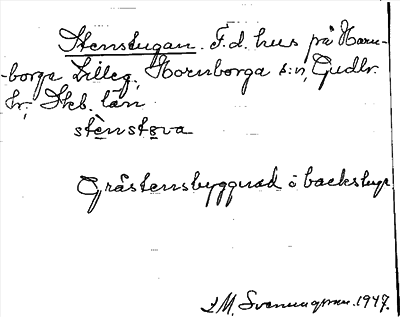 Stenstugan. F.d. hus på Horn-
-borga Lilleg., Hornborga s:n, Gudhr.
hr., Skb. län.
stenstøva
Gråstensbyggnad o backstuga
S.M. Svenungsson. 1947.